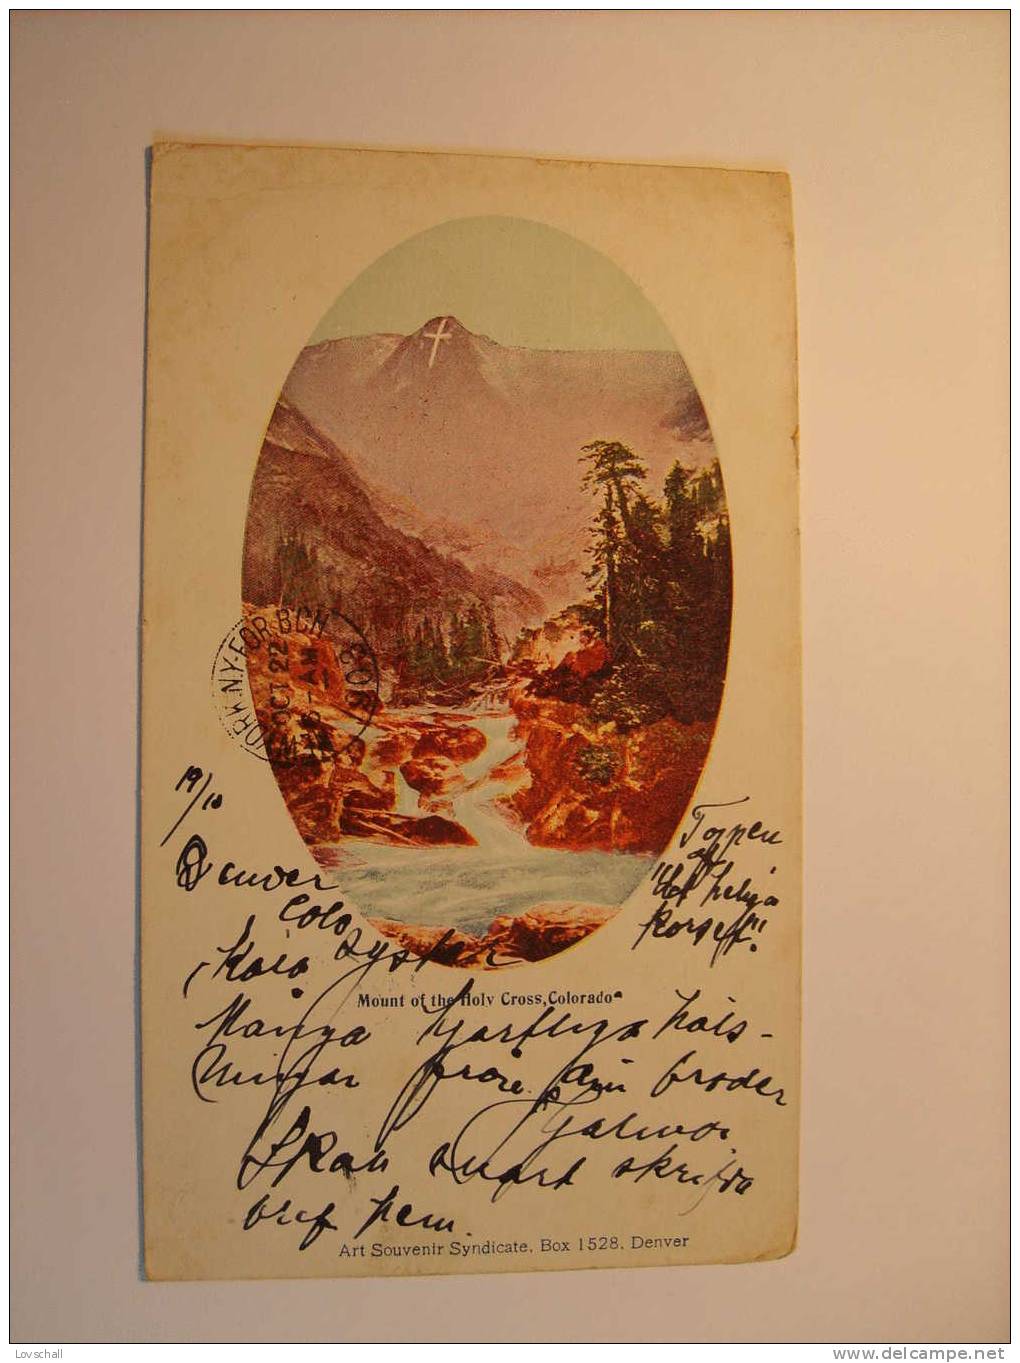 YORK, N.Y. FOR. BCH
OCT 22
AM
19/10
Denver
Colo
Toppen
af
"det heliga
korset".
Kära Syster
Mount of the Holy Cross, Colorado
Många hjärtliga häls-
ningar från din broder
Skall snart skrifva
bref hem.
Art Souvenir Syndicate, Box 1528, Denver
Lovschall
www.delcampe.net